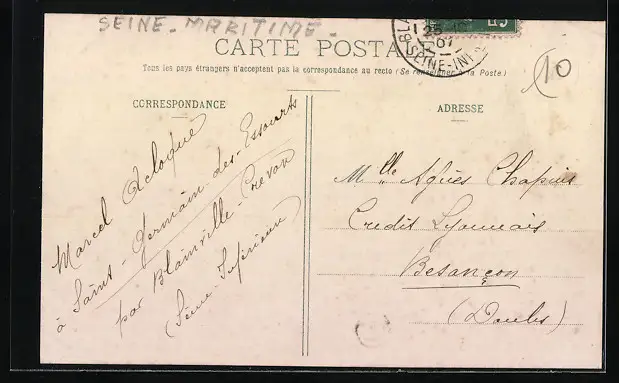 SEINE-MARITIME-
CARTE POSTA
Tous les pays étrangers n'acceptent pas la correspondance au recto (Se renseigner à la Poste)
10
CORRESPONDANCE
Marcel Acloque
à Saint-Germain-des-Essourts
par Blainville-Crevon
(Seine-Inférieure)
ADRESSE
Mlle Agnès Chapuis
Credit Lyonnais
Besançon
(Doubs)
BLA
25
07
SEINE-INF